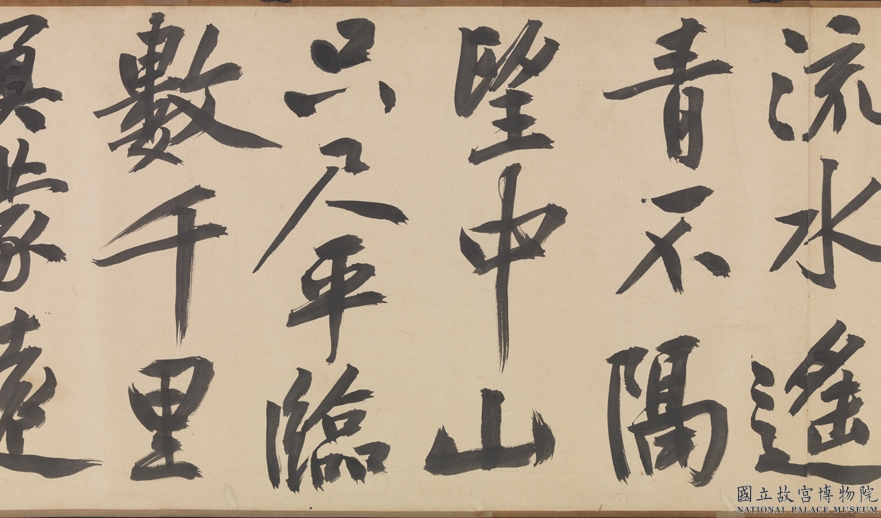 流水遙
青不隔
望中山
只尺平臨
數千里
蒙遠
國立故宮博物院
NATIONAL PALACE MUSEUM